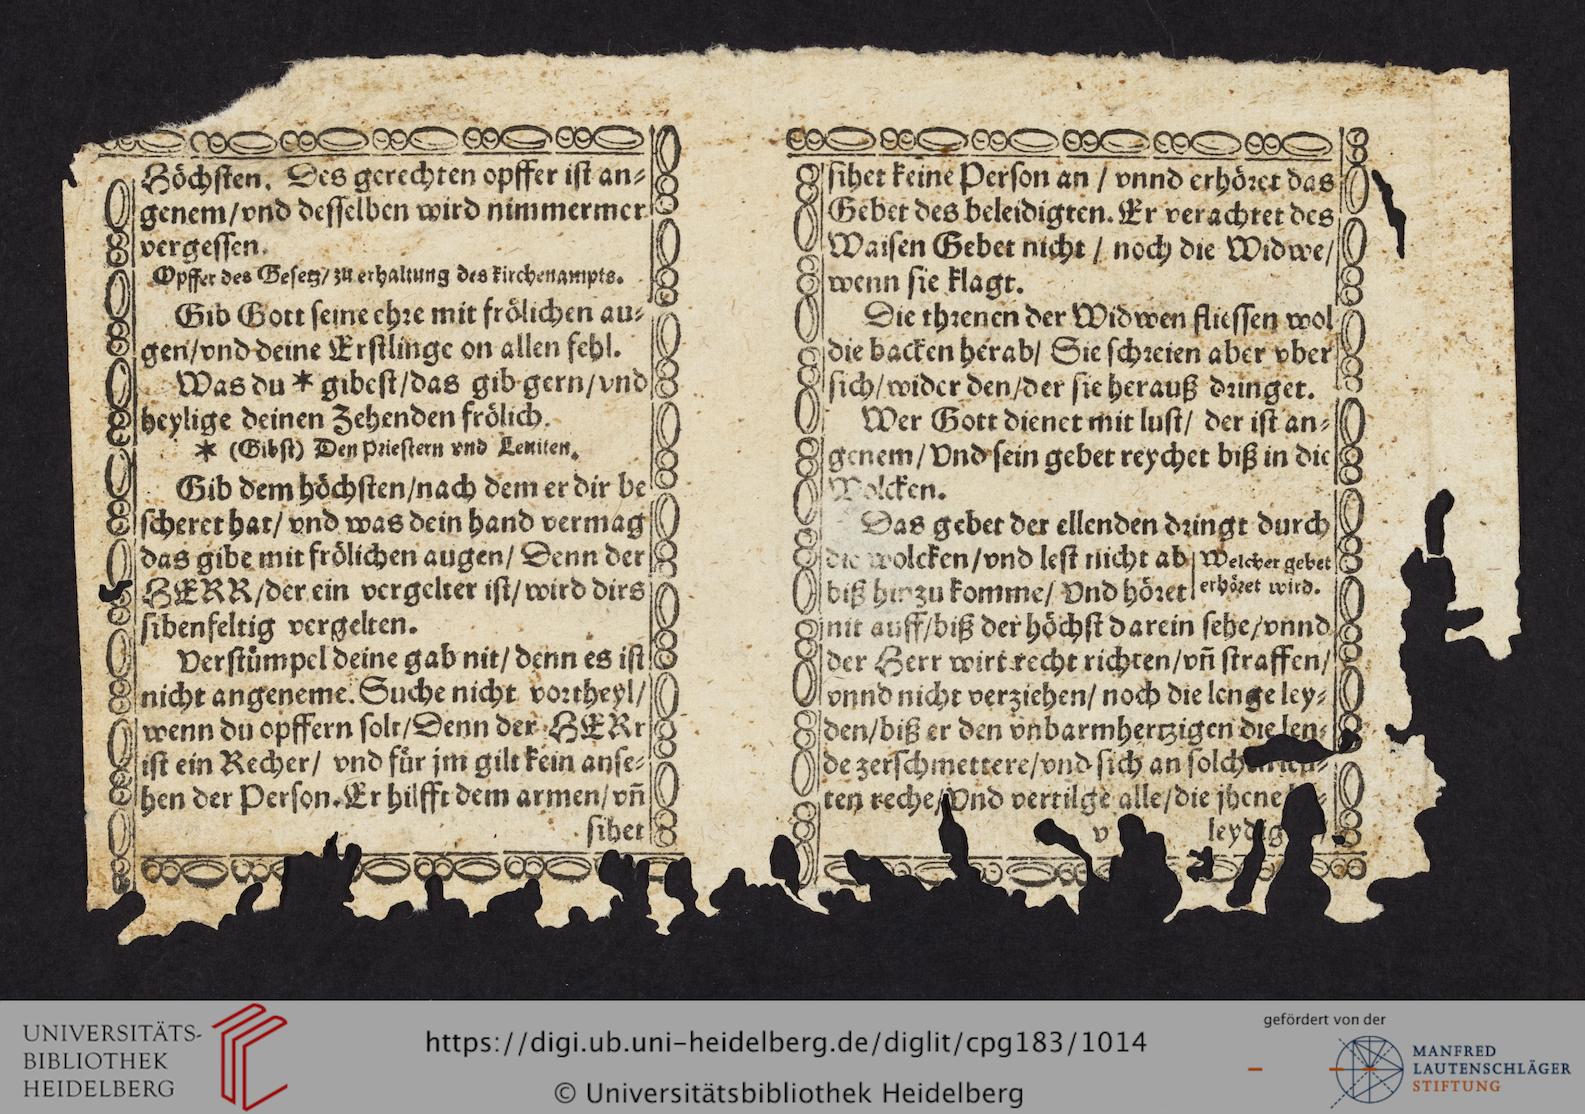 Höchsten. Des gerechten opffer ist an-
genem/vnd desselben wird nimmermer
vergessen.
Opffer des Gesetz/zu erhaltung des kirchenampts.
Gib Gott seine ehre mit frölichen au-
gen/vnd deine Erstlinge on allen fehl.
Was du * gibest/das gib gern/vnd
heylige deinen Zehenden frölich.
* (Gibst) Den Priestern vnd Leuiten.
Gib dem höchsten/nach dem er dir be
scheret hat/ vnd was dein hand vermag
das gibe mit frölichen augen/ Denn der
HERR/der ein vergelter ist/wird dirs
sibenfeltig vergelten.
Verstümpel deine gab nit/ denn es ist
nicht angeneme. Suche nicht vortheyl/
wenn du opffern solt/Denn der HERr
ist ein Recher/ vnd für jm gilt kein anse-
hen der Person. Er hilfft dem armen/vñ
sihet
sihet keine Person an / vnnd erhöret das
Gebet des beleidigten. Er verachtet des
Waisen Gebet nicht / noch die Widwe/
wenn sie klagt.
Die threnen der Widwen fliessen wol
die backen herab/ Sie schreien aber vber
sich/wider den/der sie herauß dringet.
Wer Gott dienet mit lust/ der ist an-
genem/ Vnd sein gebet reychet biß in die
Wolcken.
Das gebet der ellenden dringt durch
die wolcken/vnd lest nicht ab Welcher gebet
biß hinzu komme/ Vnd höret erhöret wird.
nit auff/biß der höchst darein sehe/vnnd
der Herr wirt recht richten/vñ straffen/
vnnd nicht verziehen/ noch die lenge ley-
den/biß er den vnbarmhertzigen die len-
de zerschmettere/vnd sich an
ten reche/Vnd vertilge alle/die jhene
v
UNIVERSITÄTS-
BIBLIOTHEK
HEIDELBERG
https://digi.ub.uni-heidelberg.de/diglit/cpg183/1014
© Universitätsbibliothek Heidelberg
gefördert von der
MANFRED
LAUTENSCHLÄGER
STIFTUNG